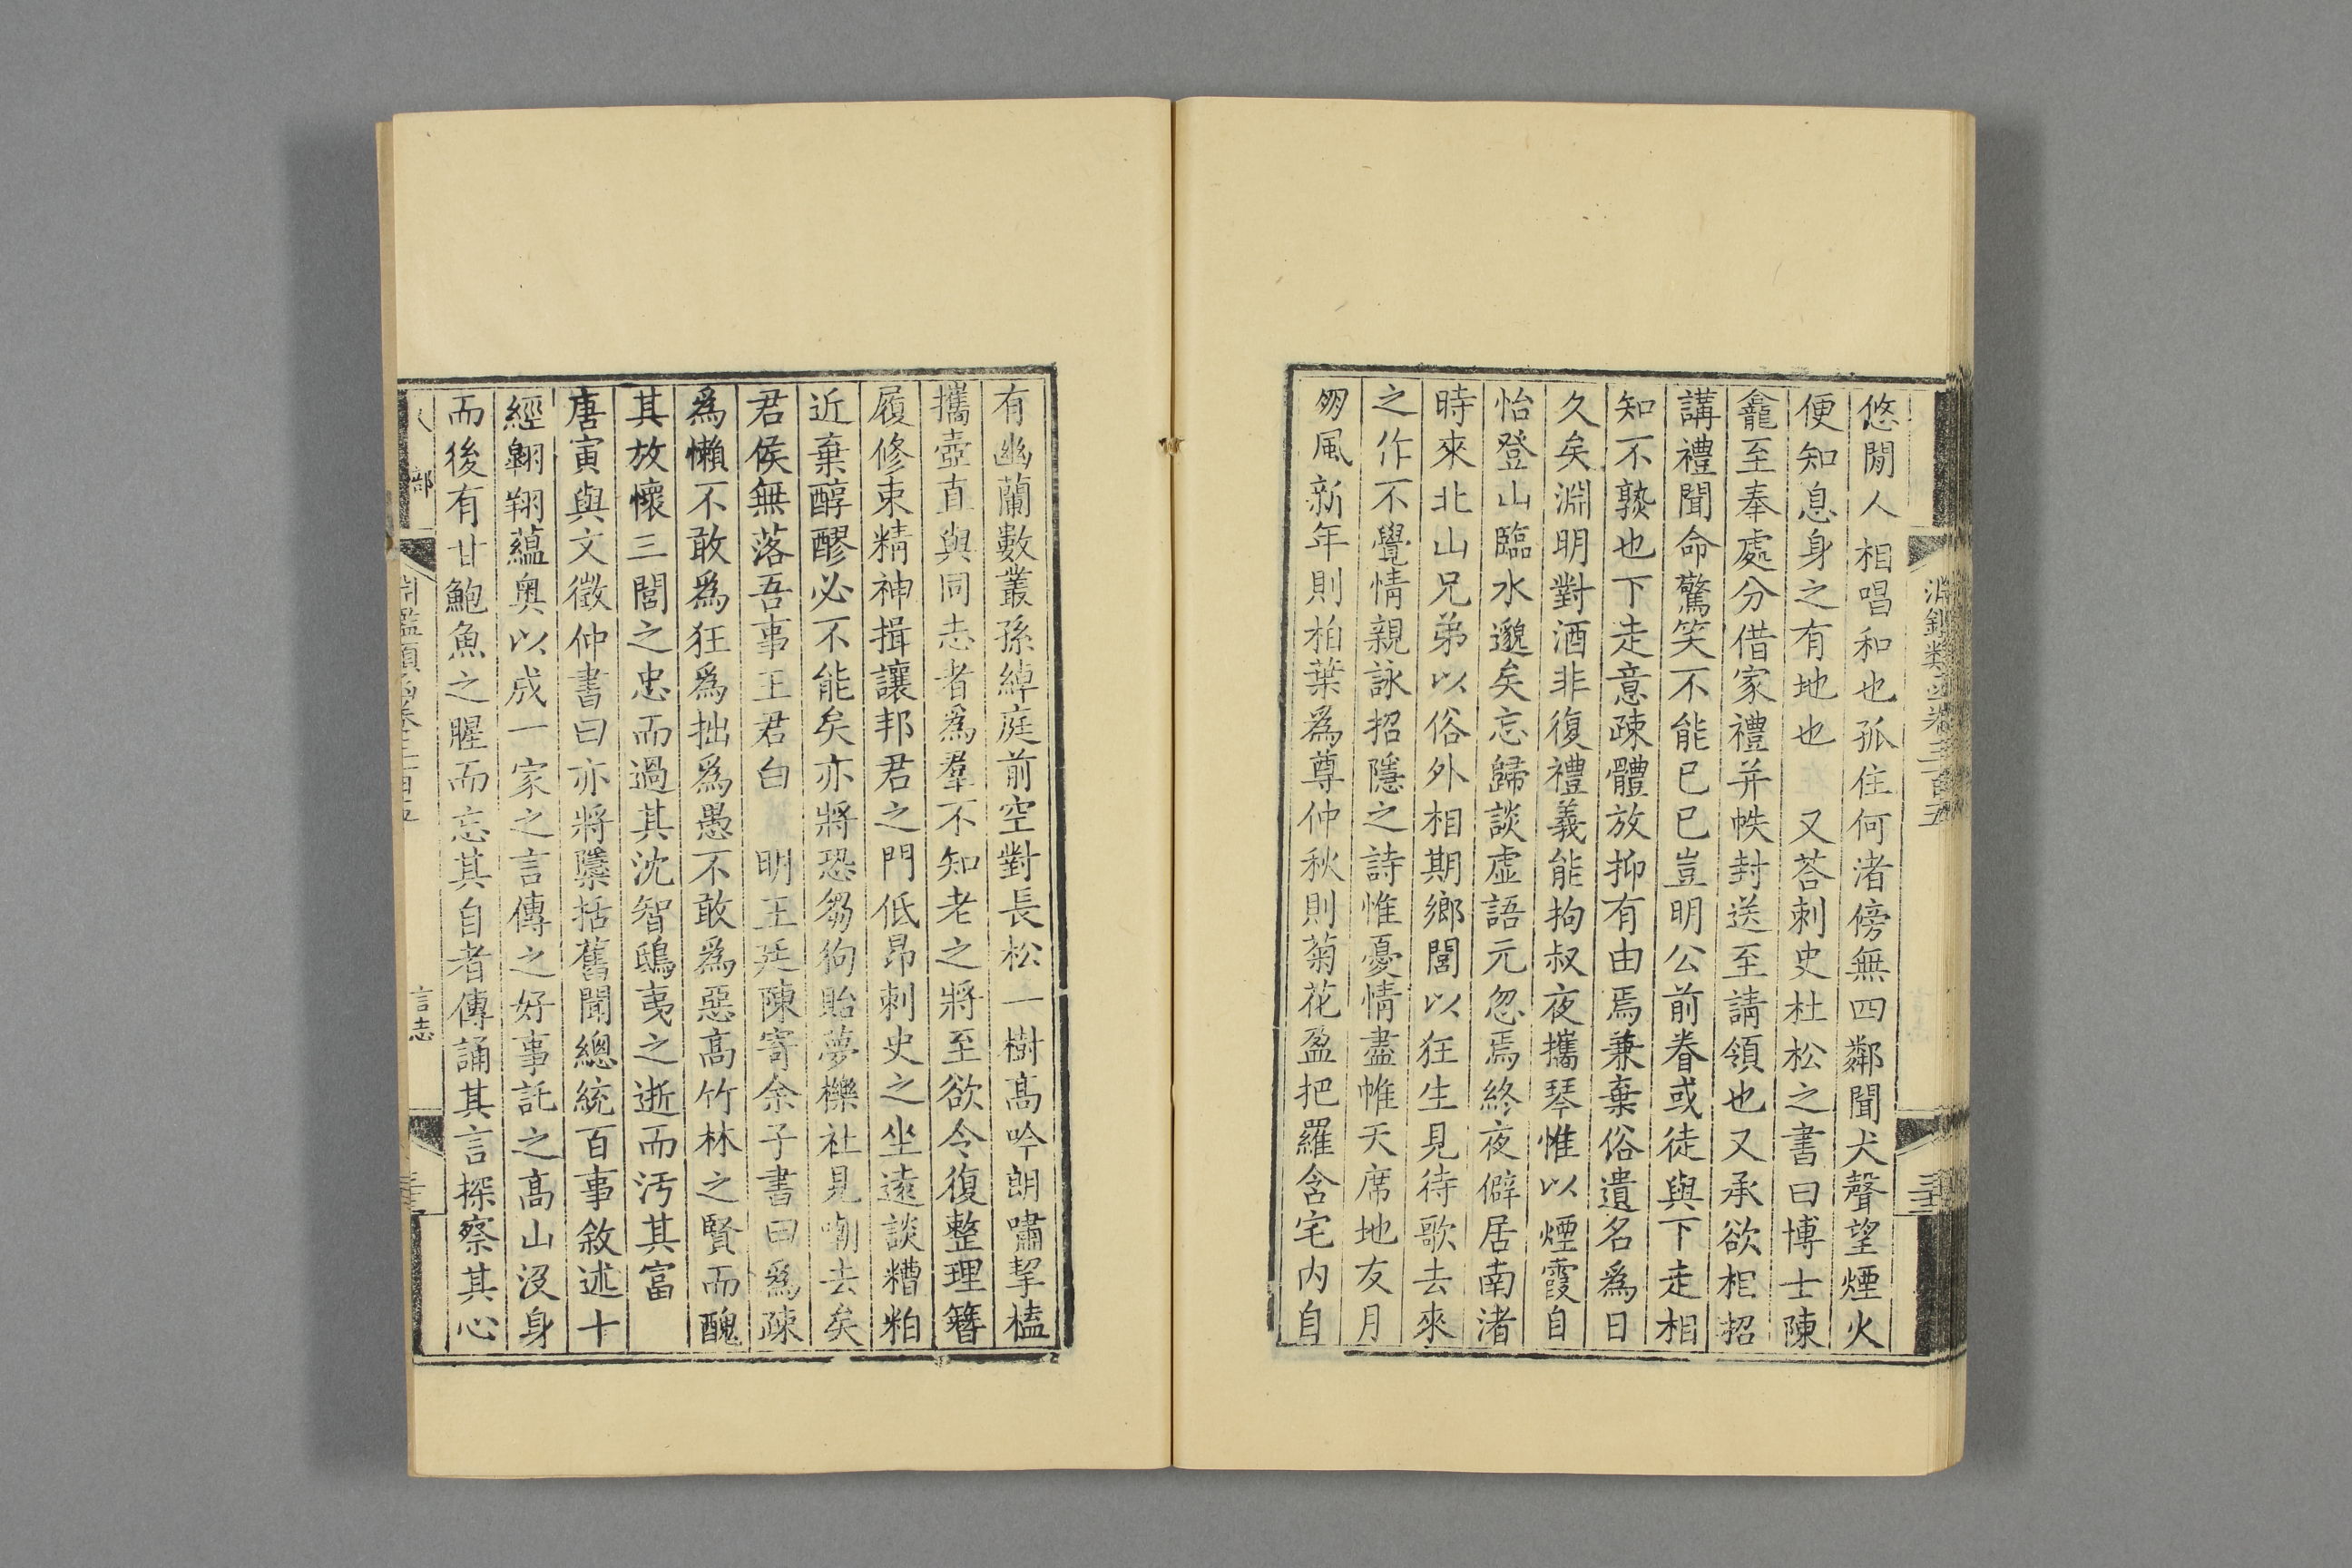 悠閒人相唱和也孤住何渚傍無四鄰聞犬聲望煙火
便知息身之有地也　又荅刺史杜松之書曰博士陳
龕至奉處分借家禮并帙封送至請領也又承欲相招
講禮聞命驚笑不能已已豈明公前眷或徒與下走相
知不熟也下走意疎體放抑有由焉兼棄俗遺名為日
久矣淵明對酒非復禮義能拘叔夜攜琴惟以煙霞自
怡登山臨水邈矣忘歸談虛語元忽焉終夜僻居南渚
時來北山兄弟以俗外相期鄉閭以狂生見待歌去來
之作不覺情親詠招隱之詩惟憂情盡帷天席地友月
朋風新年則柏葉爲尊仲秋則菊花盈把羅含宅内自
有幽蘭數叢孫綽庭前空對長松一樹高吟朗嘯挈榼
攜壺直與同志者為羣不知老之將至欲令復整理簪
履修束精神揖讓邦君之門低昂刺史之坐遠談糟粕
近棄醇醪必不能矣亦將恐芻狗貽夢櫟社見嘲去矣
君侯無落吾事王君白　明王廷陳寄余子書曰爲疎
爲懶不敢爲狂爲拙爲愚不敢爲惡高竹林之賢而醜
其放懷三閭之忠而過其沈智鴟夷之逝而汚其富
唐寅與文徵仲書曰亦將櫽括舊聞總統百事敘述十
經翺翔蘊奥以成一家之言傳之好事託之高山沒身
而後有甘鮑魚之腥而忘其自者傳誦其言探察其心
淵鑑類函卷三百五
言志